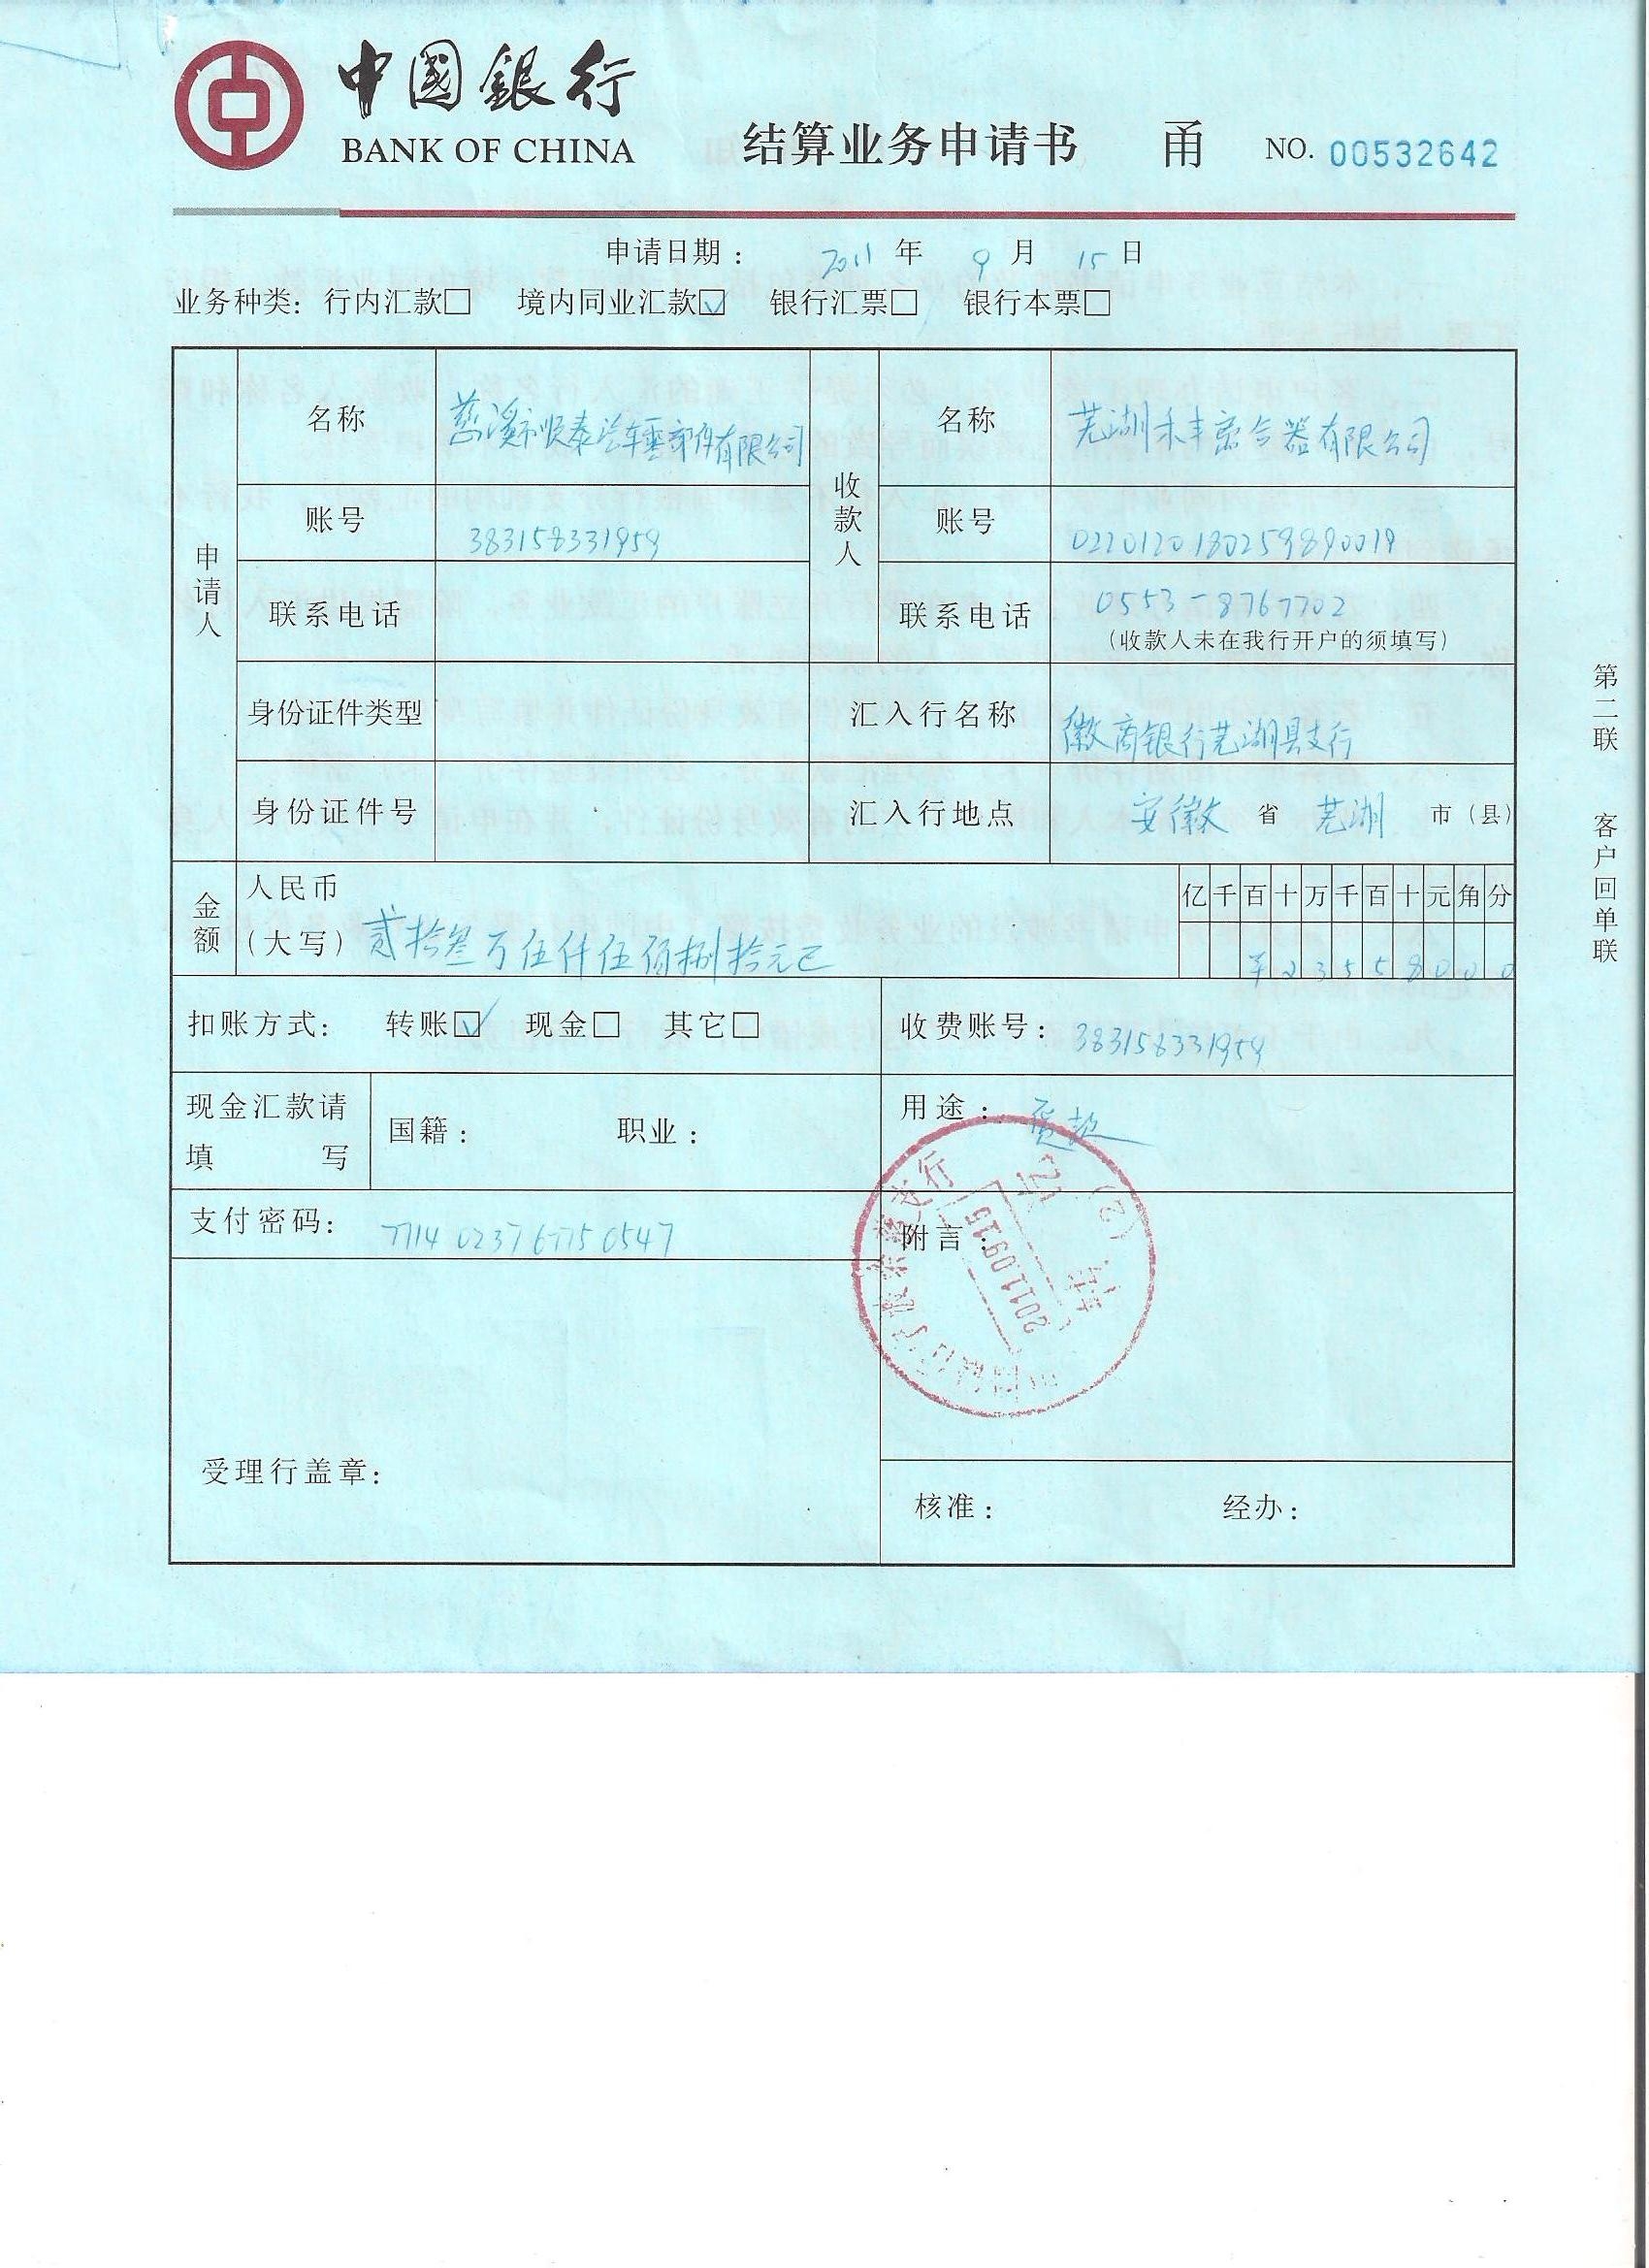 中國銀行
BANK OF CHINA
结算业务申请书 甬 NO. 00532642
申请日期: 2011 年 9 月 15 日
业务种类: 行内汇款□ 境内同业汇款☑ 银行汇票□ 银行本票□
申请人
名称 慈溪市顺泰汽车零部件有限公司
收款人
名称 芜湖禾丰离合器有限公司
账号 383158331959
账号
联系电话
联系电话 0553-8767702
(收款人未在我行开户的须填写)
身份证件类型
汇入行名称 徽商银行芜湖县支行
身份证件号
汇入行地点 安徽 省 芜湖 市(县)
金额
人民币
(大写) 贰拾叁万伍仟伍佰捌拾元
亿千百十万千百十元角分
23558000
扣账方式: 转账☑ 现金□ 其它□
收费账号: 383158331959
现金汇款请
填 写
国籍: 职业:
用途:
支付密码:
附言:
2011.09.15
受理行盖章:
核准: 经办:
第二联 客户回单联